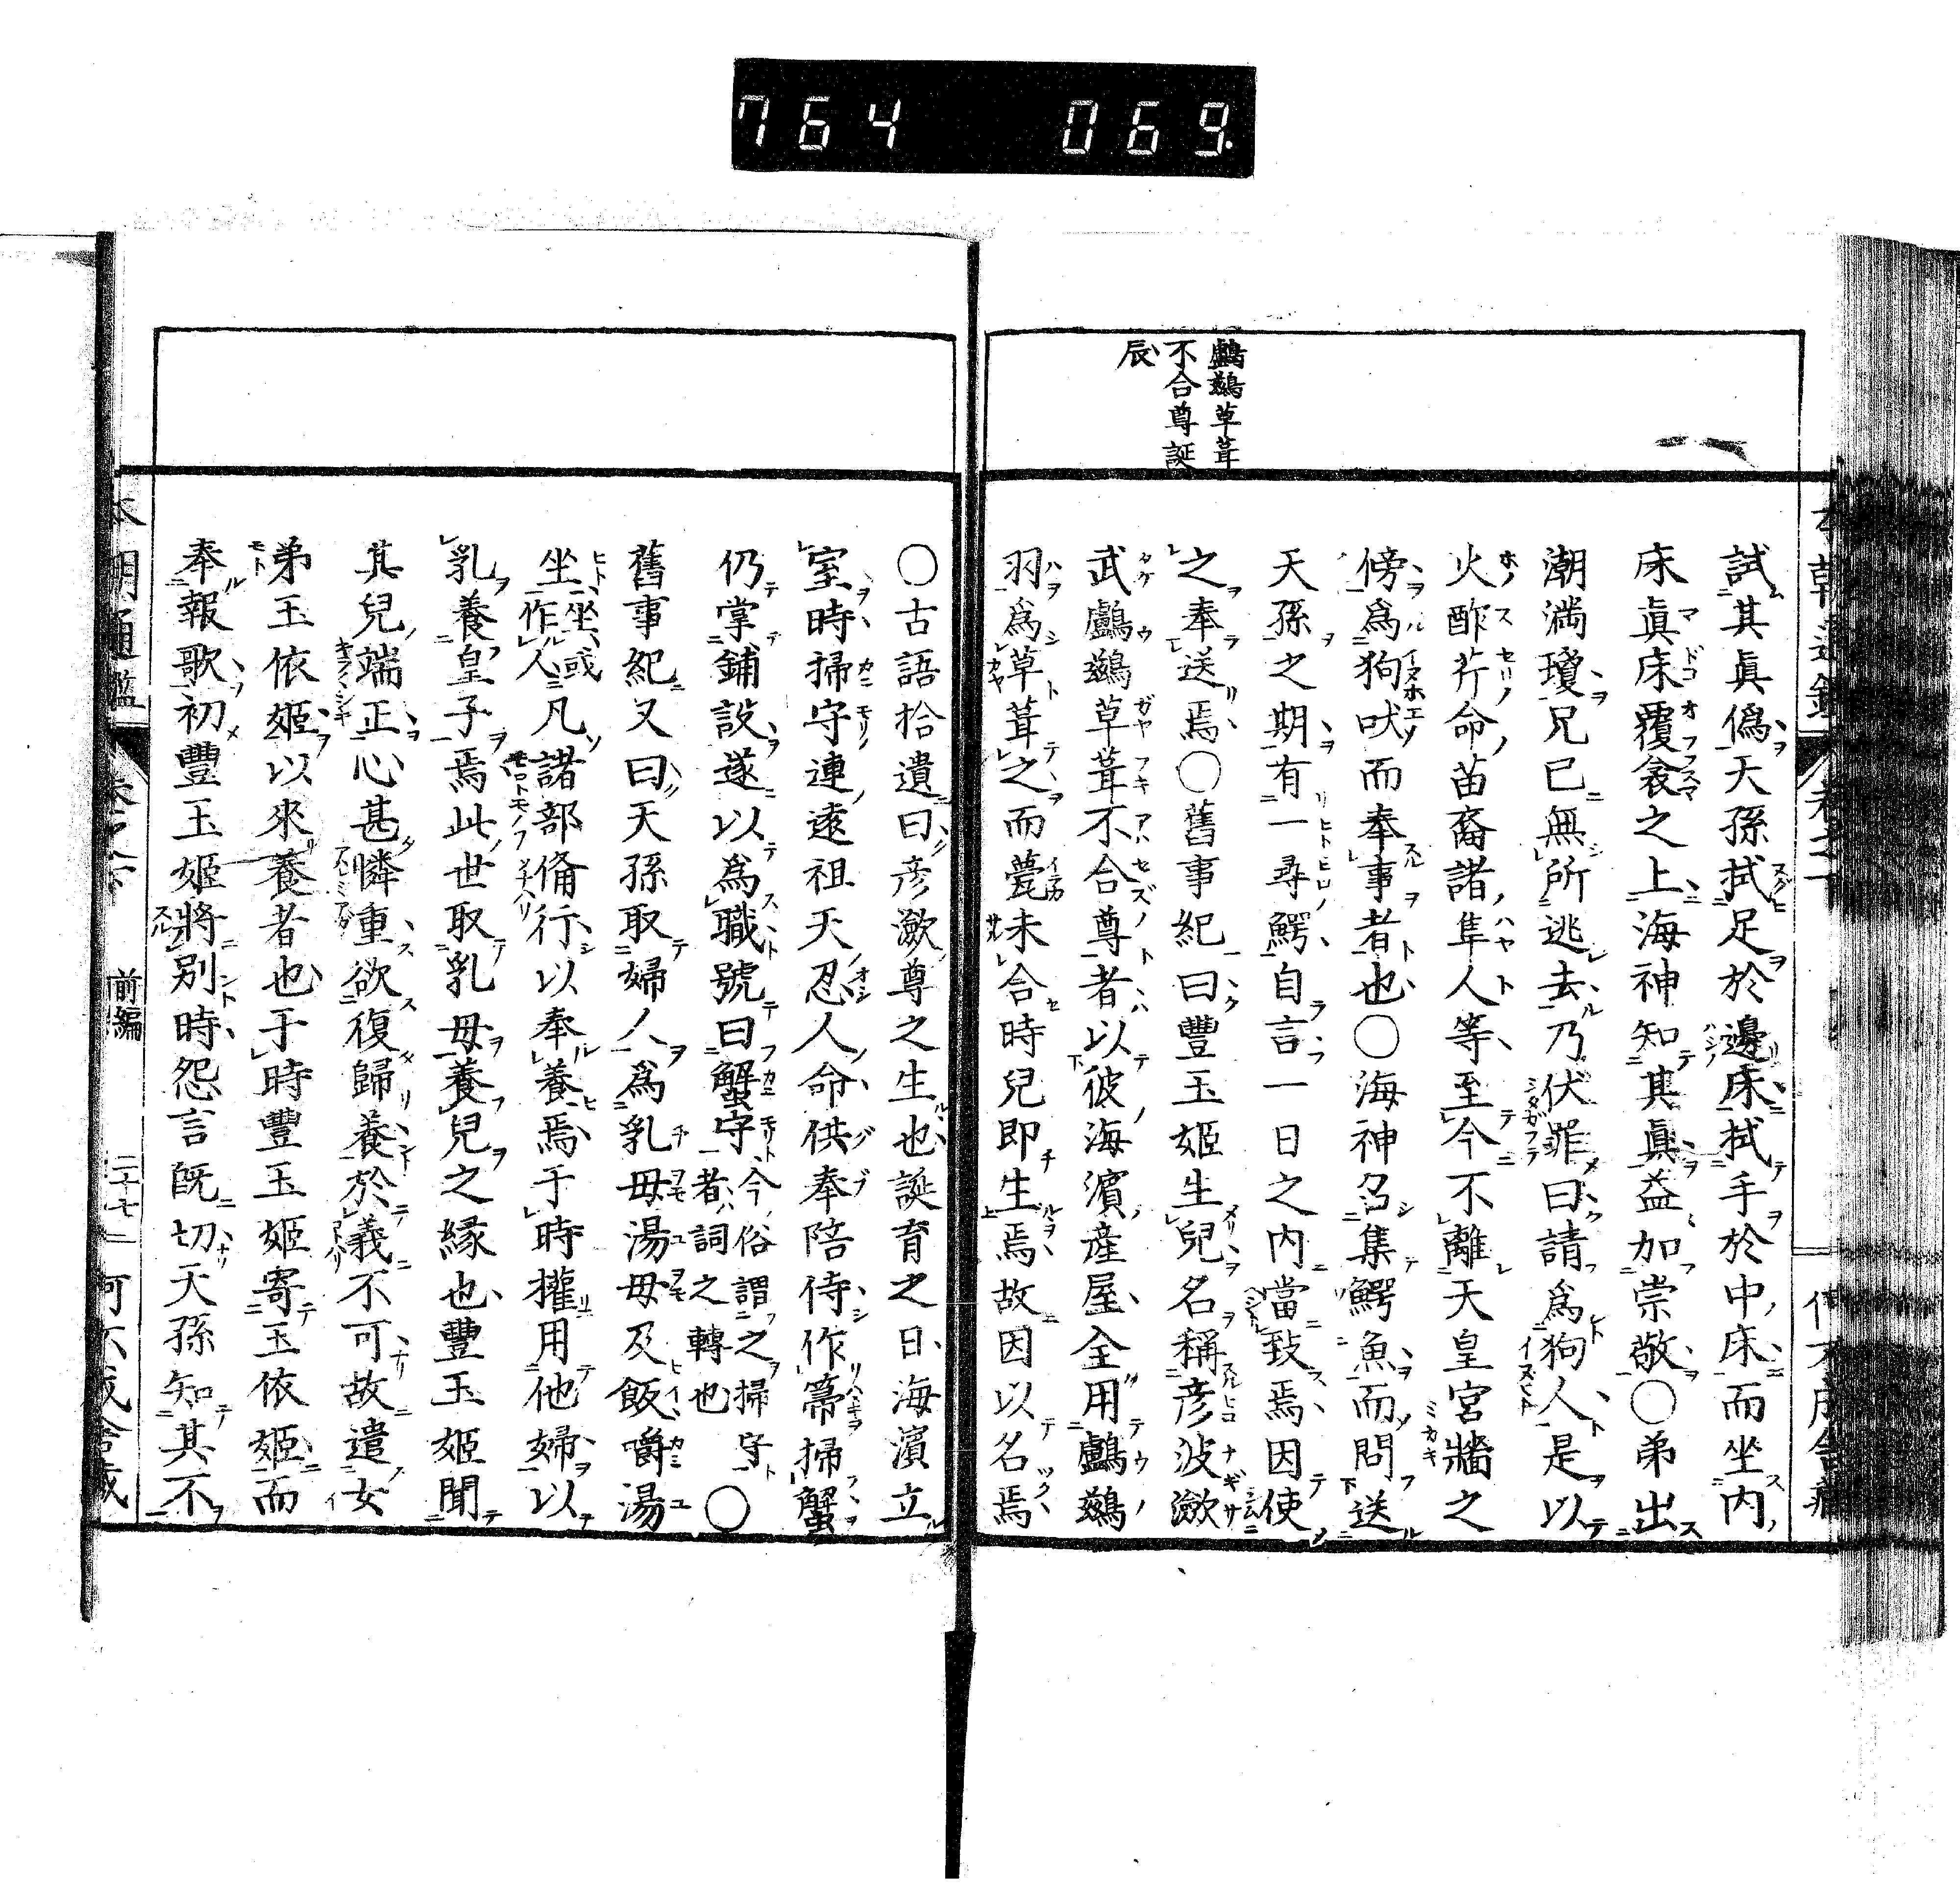 764 069
鸕鷀草葺
不合尊誕
辰
試其眞僞天孫拭足於邊床拭手於中床而坐內
床眞床覆衾之上海神知其眞益加崇敬○弟出
潮満瓊兄已無所逃去乃伏罪曰請爲狗人是以
火酢芹命苗裔諸隼人等至今不離天皇宮牆之
傍爲狗吠而奉事者也○海神召集鰐魚而問送
天孫之期有一尋鰐自言一日之內當致焉因使
之奉送焉○舊事紀曰豐玉姬生兒名稱彦波瀲
武鸕鷀草葺不合尊者以彼海濱産屋全用鸕鷀
羽爲草葺之而甍未合時兒即生焉故因以名焉
○古語拾遺曰彦瀲尊之生也誕育之日海濱立
室時掃守連遠祖天忍人命供奉陪侍作箒掃蟹
仍掌鋪設遂以爲職號曰蟹守今俗謂之掃守者詞之轉也○
舊事紀又曰天孫取婦人爲乳母湯母及飯嚼湯
坐坐或作人凡諸部備行以奉養焉于時權用他婦以
乳養皇子焉此世取乳母養兒之縁也豐玉姬聞
其兒端正心甚憐重欲復歸養於義不可故遣女
弟玉依姬以來養者也于時豐玉姬寄玉依姬而
奉報歌初豐玉姬將別時怨言既切天孫知其不
本朝通鑑
前編
二十七